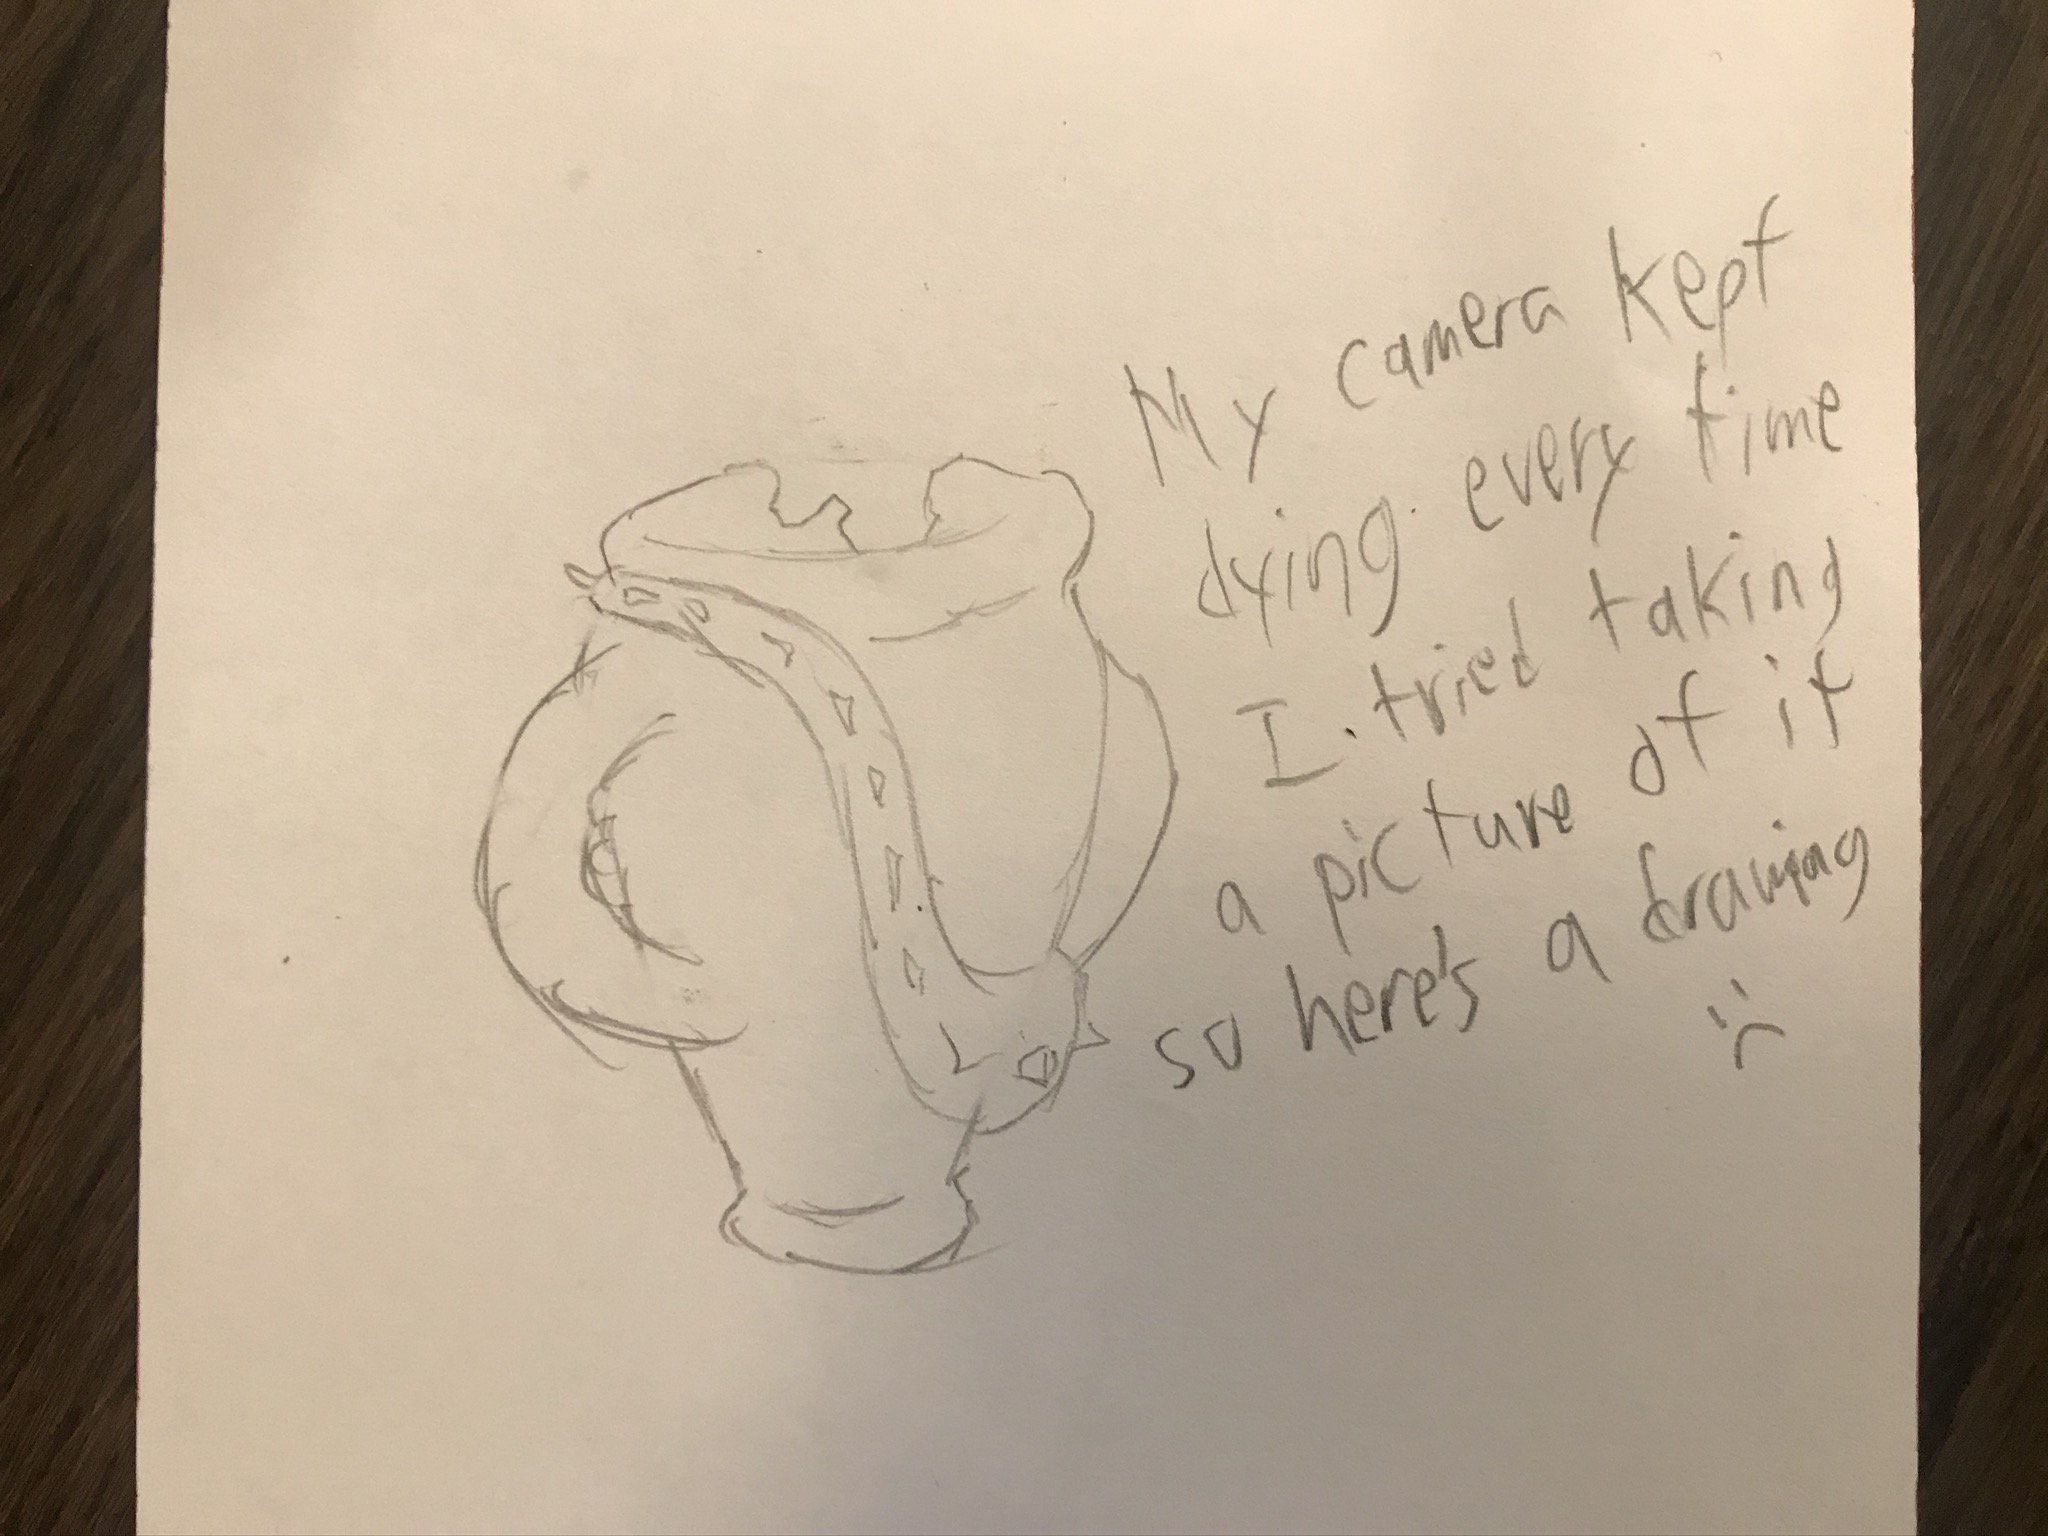 My camera kept
dying every time
I tried taking
a picture of it
so here's a drawing
:(